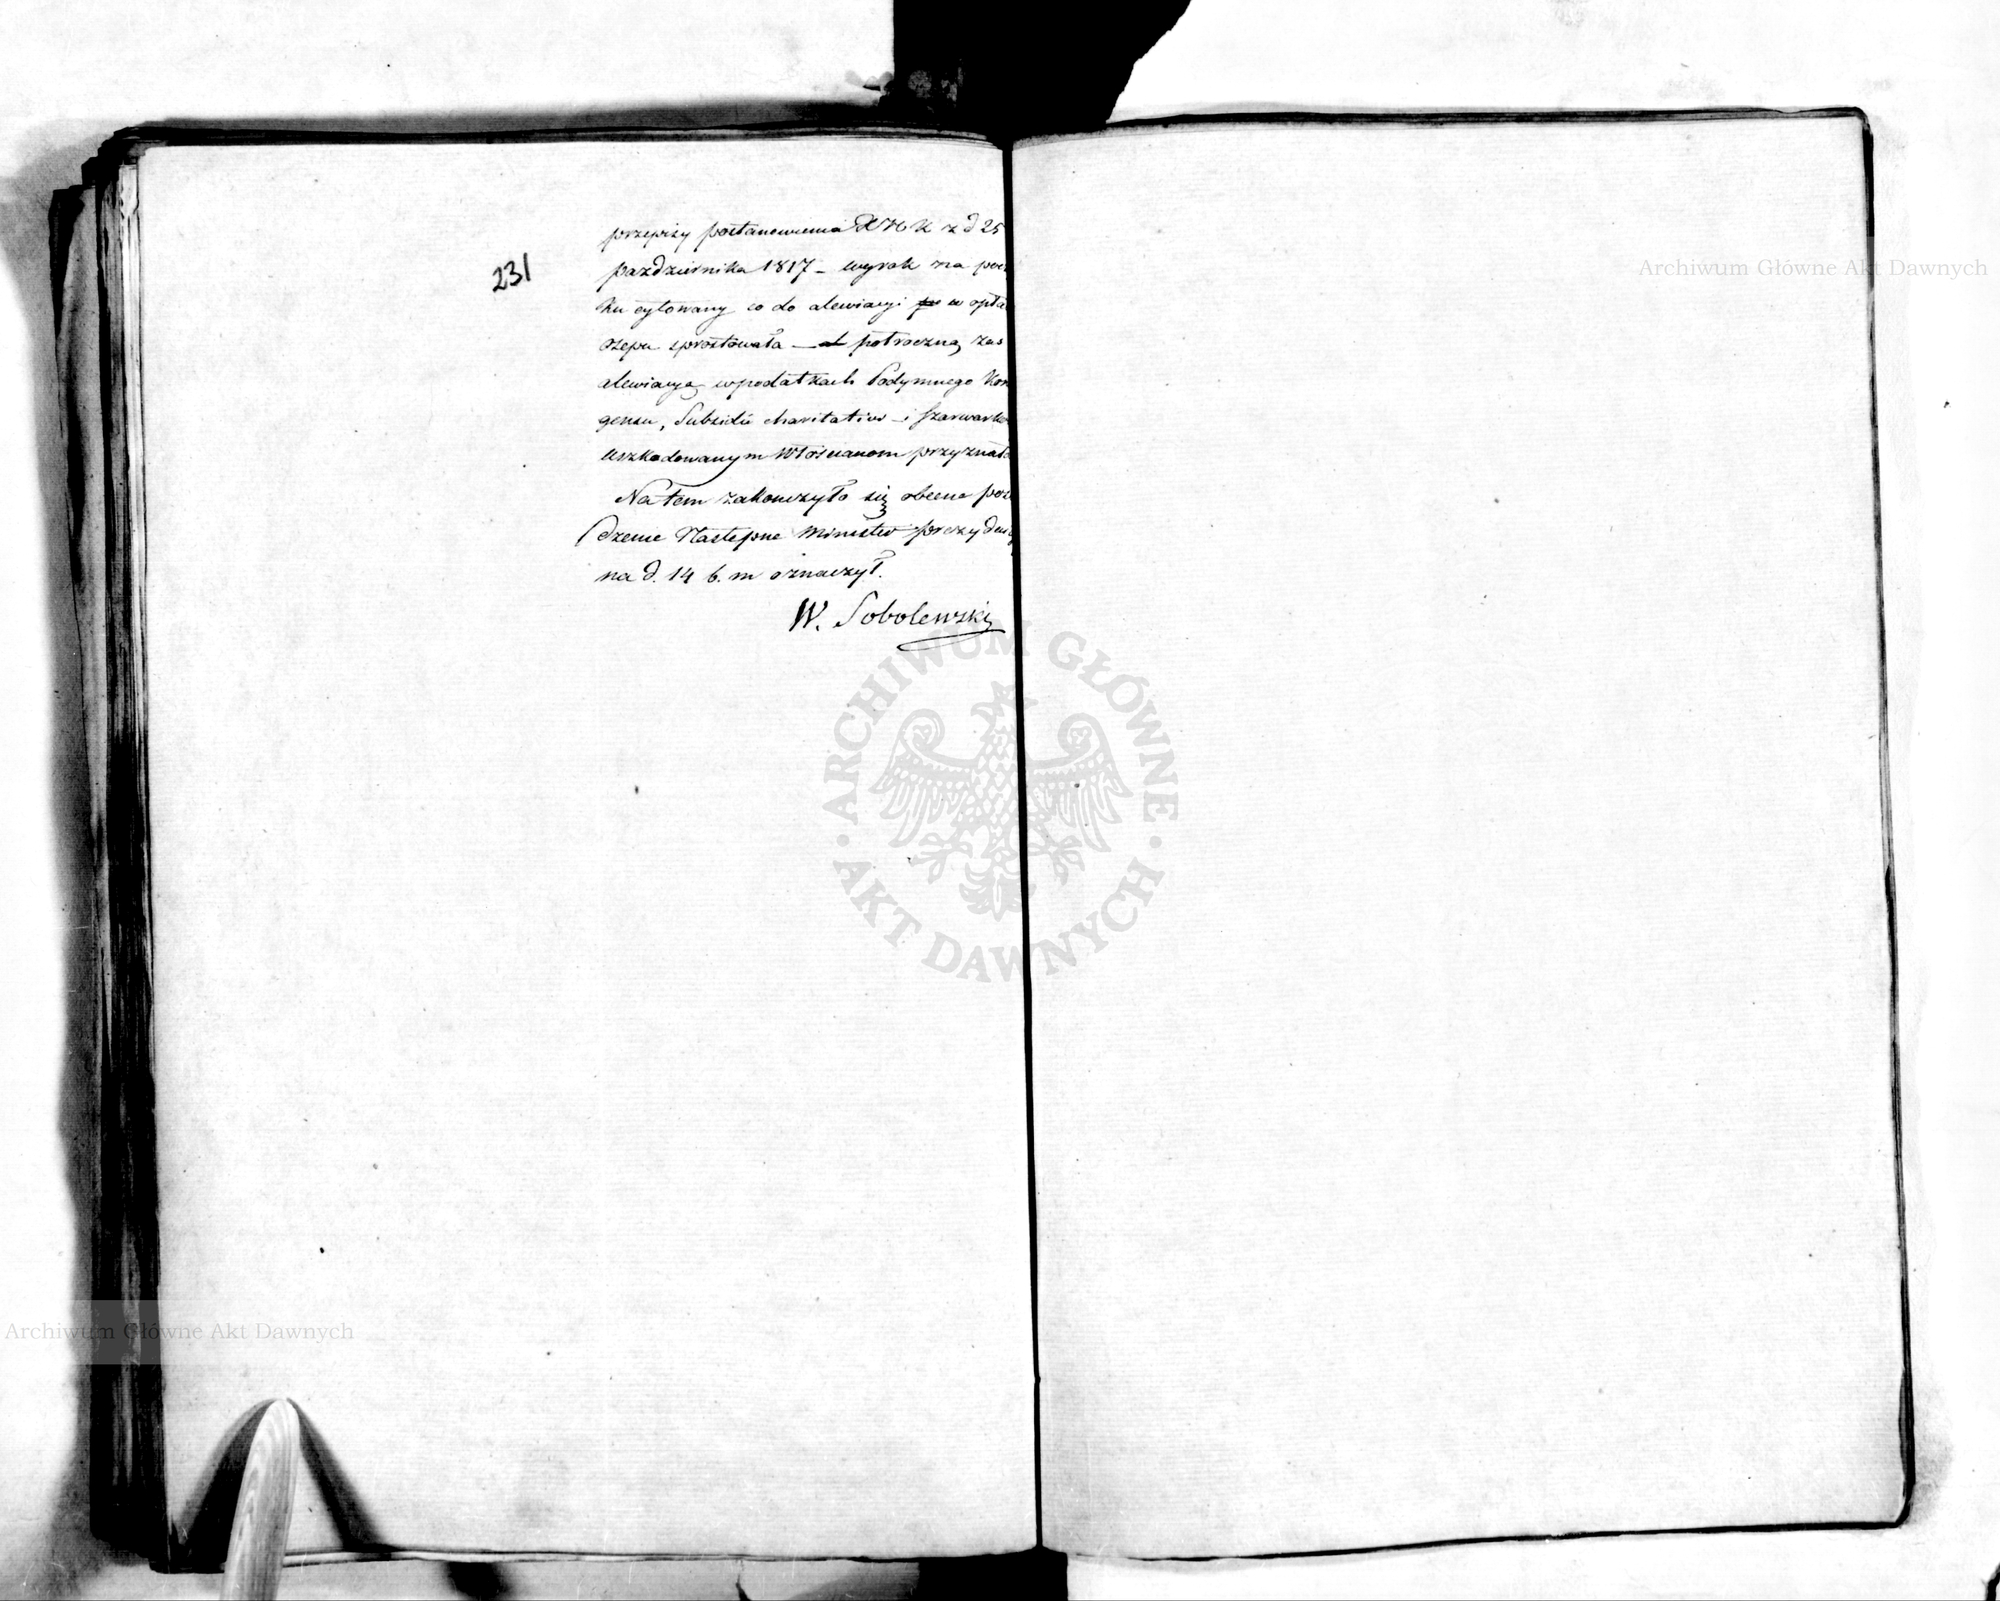 231
przepisy postanowienia X N K z d 25
pazdziernika 1817 – wyrok na pocz
ku cytowany co do alewiacyi w opła
czepu sprostowała – potroczną zas
alewiacyę w podatkach Podymnego Kon
gensu, Subsidii charitativi – i Szarwarko
uszkodowanym Włościanom przyznała
Na tem zakonczyło się obecne posi
dzenie Następne Minister prezyduią
na d. 14 b. m oznaczył.
W. Sobolewski
Archiwum Główne Akt Dawnych
ARCHIWUM GŁÓWNE AKT DAWNYCH
Archiwum Główne Akt Dawnych